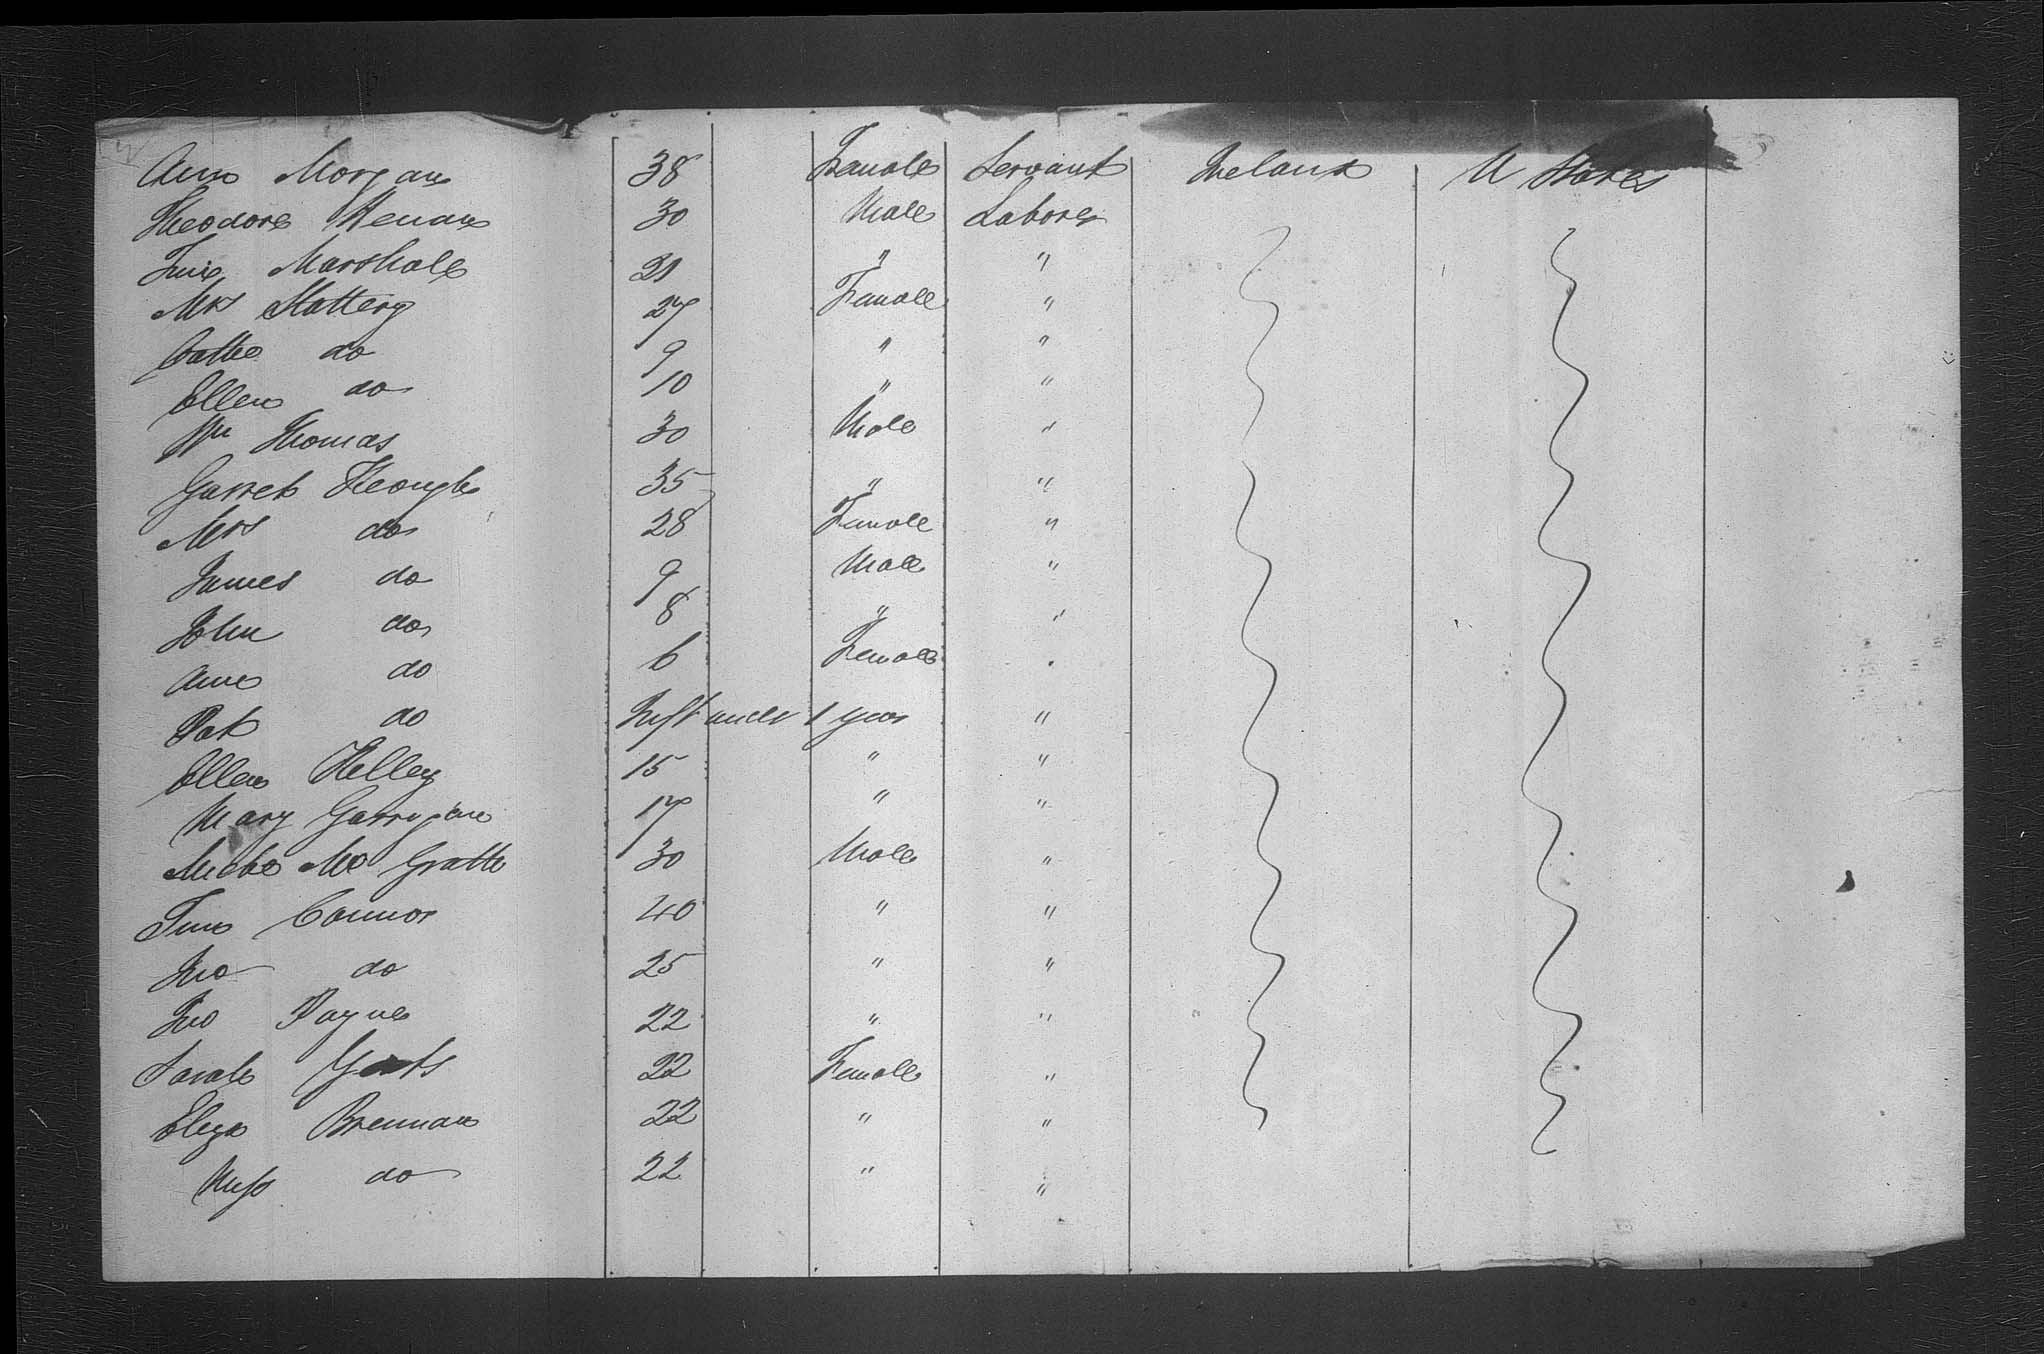 Ann Morgan 38 Female Servant Ireland U States
Theodore Henan 30 Male Laborer
Marshall 21 " "
Mrs Slattery 27 Female "
Cathe do 9 " "
Ellen do 10 " "
Wm Thomas 30 Male "
Garret Keough 35 " "
Mrs do 28 Female "
James do 9 Male "
John do 8 " "
Ann do 6 Female "
Pat do Inft under 1 year "
Ellen Kelley 15 " "
Mary Garrigan 17 " "
Michl Mc Grath 30 Male "
Tim Connor 40 " "
Jno do 25 " "
Jno Payne 22 " "
Sarah 22 Female "
Eliza Brennan 22 " "
do 22 " "